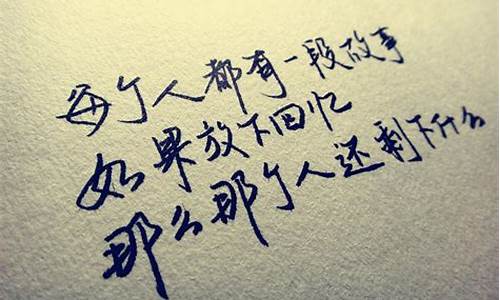 每个人都有一段故事
如果放下回忆
那么那个人还剩下什么